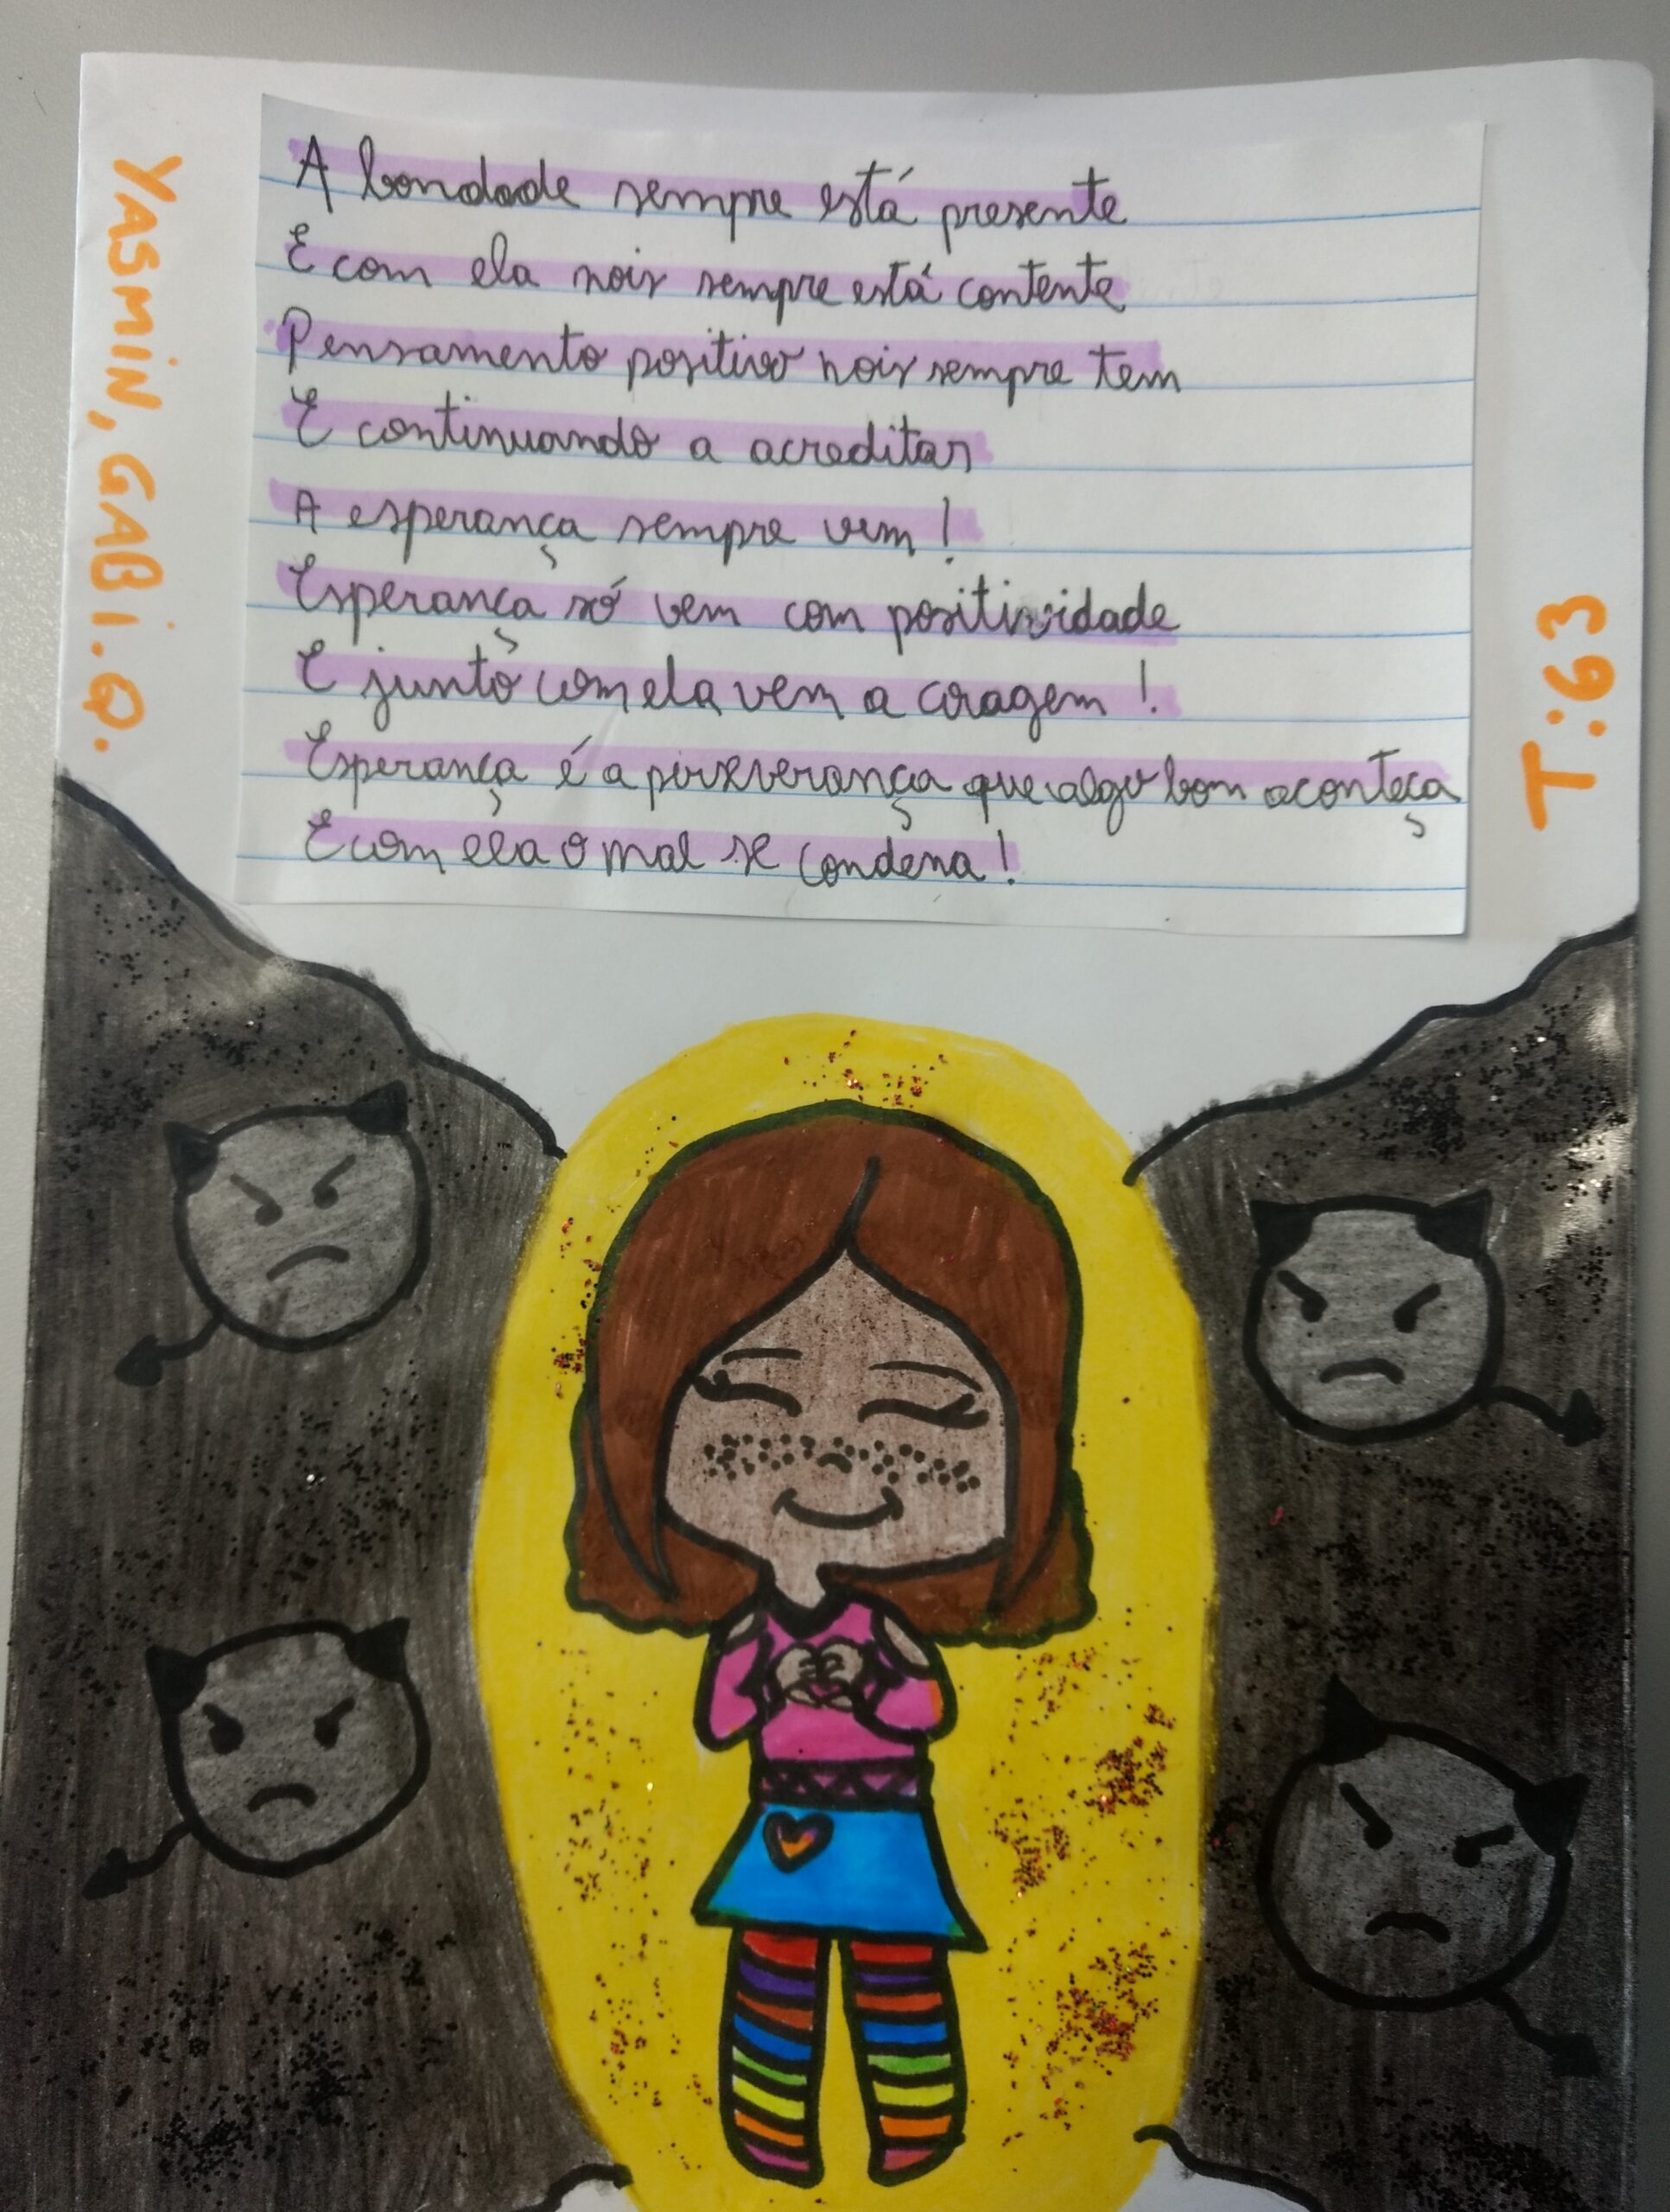 A bondade sempre está presente
E com ela nois sempre está contente
Pensamento positivo nois sempre tem
E continuando a acreditar
A esperança sempre vem!
Esperança só vem com positividade
E junto com ela vem a coragem!
Esperança é a perseverança que algo bom aconteça
E com ela o mal se condena!
YASMIN, GABI.Q.
T:63